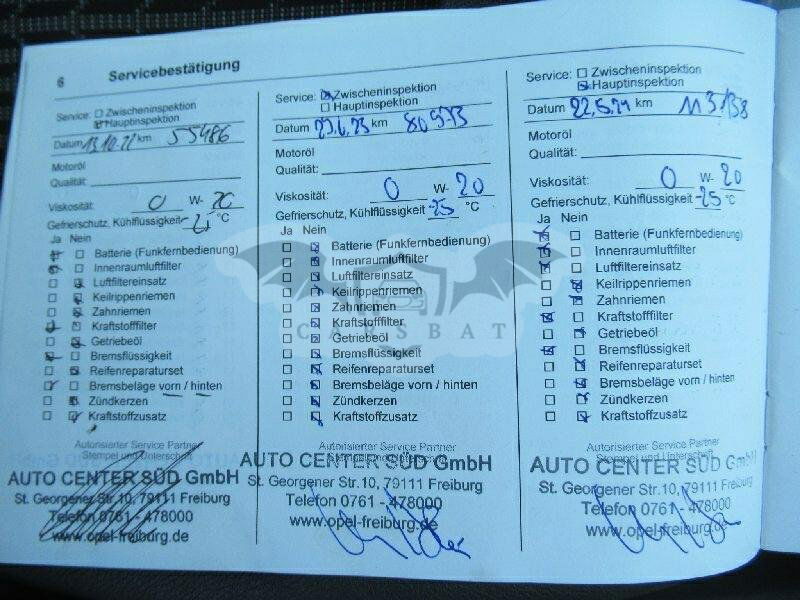 6 Servicebestätigung
Service: Zwischeninspektion
Hauptinspektion
Datum 13.10.22 km 55486
Motoröl
Qualität:
Viskosität: 0 W- 20
Gefrierschutz, Kühlflüssigkeit °C
Ja Nein
Batterie (Funkfernbedienung)
Innenraumluftfilter
Luftfiltereinsatz
Keilrippenriemen
Zahnriemen
Kraftstofffilter
Getriebeöl
Bremsflüssigkeit
Reifenreparaturset
Bremsbeläge vorn / hinten
Zündkerzen
Kraftstoffzusatz
Autorisierter Service Partner
Stempel und Unterschrift
AUTO CENTER SÜD GmbH
St. Georgener Str.10, 79111 Freiburg
Telefon 0761 - 478000
www.opel-freiburg.de
Service: Zwischeninspektion
Hauptinspektion
Datum km 80973
Motoröl
Qualität:
Viskosität: 0 W- 20
Gefrierschutz, Kühlflüssigkeit -25 °C
Ja Nein
Batterie (Funkfernbedienung)
Innenraumluftfilter
Luftfiltereinsatz
Keilrippenriemen
Zahnriemen
Kraftstofffilter
Getriebeöl
Bremsflüssigkeit
Reifenreparaturset
Bremsbeläge vorn / hinten
Zündkerzen
Kraftstoffzusatz
Autorisierter Service Partner
Stempel und Unterschrift
AUTO CENTER SÜD GmbH
St. Georgener Str.10, 79111 Freiburg
Telefon 0761 - 478000
www.opel-freiburg.de
Service: Zwischeninspektion
Hauptinspektion
Datum 22.5.24 km 113138
Motoröl
Qualität:
Viskosität: 0 W- 20
Gefrierschutz, Kühlflüssigkeit -25 °C
Ja Nein
Batterie (Funkfernbedienung)
Innenraumluftfilter
Luftfiltereinsatz
Keilrippenriemen
Zahnriemen
Kraftstofffilter
Getriebeöl
Bremsflüssigkeit
Reifenreparaturset
Bremsbeläge vorn / hinten
Zündkerzen
Kraftstoffzusatz
Autorisierter Service Partner
Stempel und Unterschrift
AUTO CENTER SÜD GmbH
St. Georgener Str.10, 79111 Freiburg
Telefon 0761 - 478000
www.opel-freiburg.de
CARSBAT